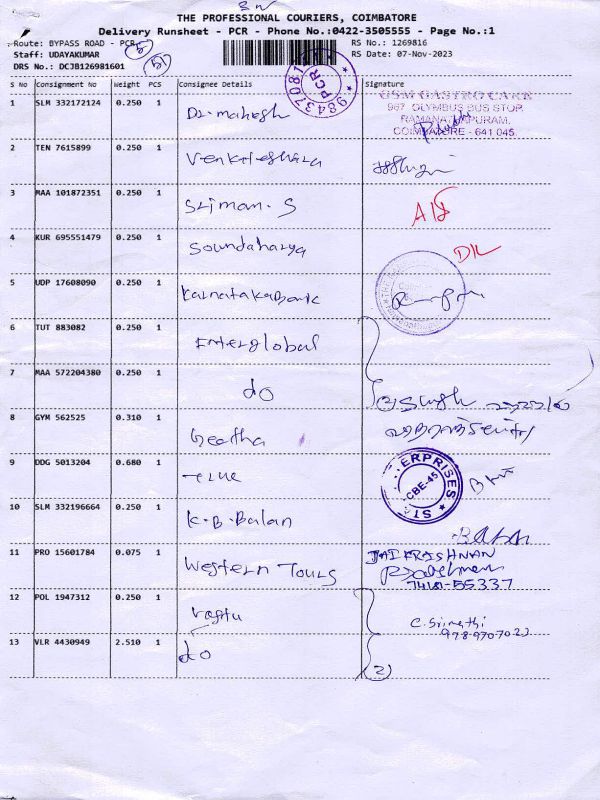 THE PROFESSIONAL COURIERS, COIMBATORE
Delivery Runsheet - PCR - Phone No.:0422-3505555 - Page No.:1
Route: BYPASS ROAD - PCR
RS No.: 1269816
Staff: UDAYAKUMAR
RS Date: 07-Nov-2023
DRS No.: DCJB126981601
PCR
S No Consignment No Weight PCS Consignee Details Signature
1 SLM 332172124 0.250 1 Dr. mahesh
GSM GASTRO CARE
967, OLYMBUS BUS STOP,
RAMANATHAPURAM,
COIMBATORE - 641 045.
2 TEN 7615899 0.250 1 Venkateshwara
3 MAA 101872351 0.250 1 Sriman. S
4 KUR 695551479 0.250 1 Soundaharya
5 UDP 17608090 0.250 1 Karnataka Bank
6 TUT 883082 0.250 1 Enterglobal
7 MAA 572204380 0.250 1 do
8 GYM 562525 0.310 1 Geetha
9 DDG 5013204 0.680 1
ERPRISES
CBE-45
10 SLM 332196664 0.250 1 K. B. Balan
11 PRO 15601784 0.075 1 Western Tours
JAIKRISHNAN
74181-55337
12 POL 1947312 0.250 1 Vastu
C. Srimathi
13 VLR 4430949 2.510 1 do
(2)